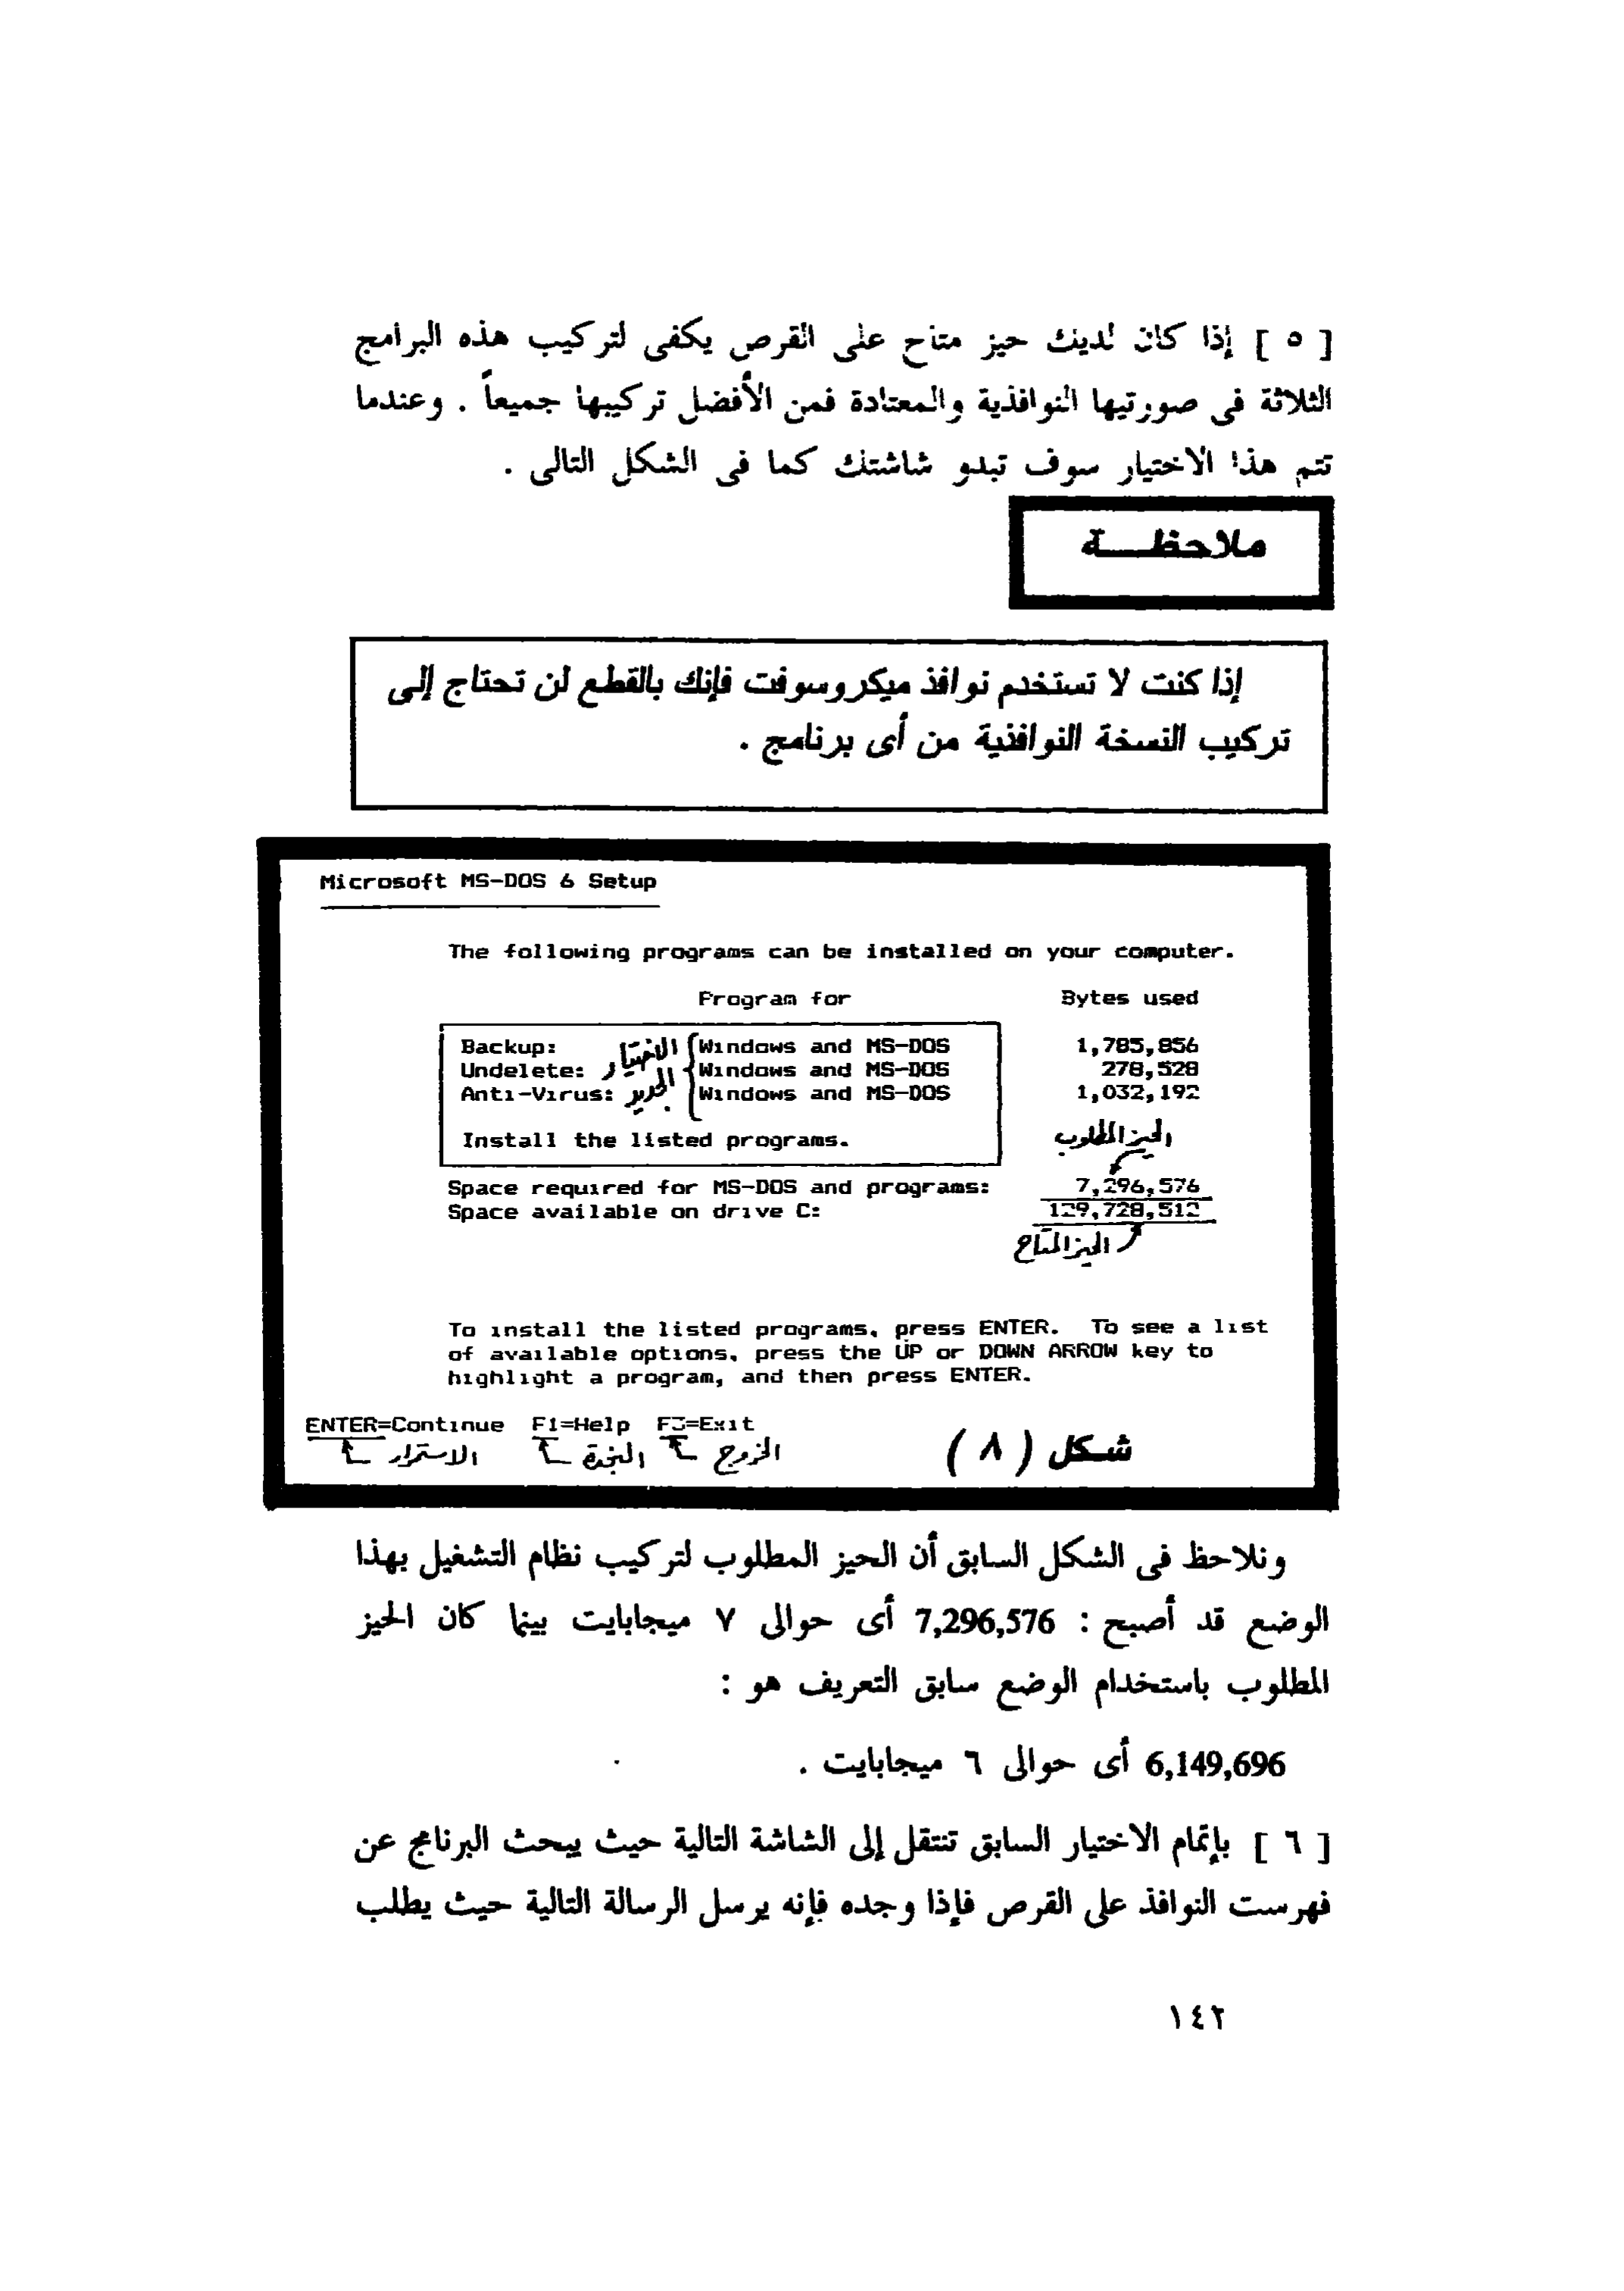 [ ٥ ] إذا كان لديك حيز متاح على القرص يكفى لتركيب هذه البرامج
الثلاثة فى صورتيها النوافذية والمعتادة فمن الأفضل تركيبها جميعاً . وعندما
تتم هذا الاختيار سوف تبدو شاشتك كما فى الشكل التالى .
ملاحظـــة
إذا كنت لا تستخدم نوافذ ميكروسوفت فإنك بالقطع لن تحتاج إلى
تركيب النسخة النوافذية من أى برنامج .
Microsoft MS-DOS 6 Setup
The following programs can be installed on your computer.
Program for Bytes used
Backup: Windows and MS-DOS 1,785,856
Undelete: Windows and MS-DOS 278,528
Anti-Virus: Windows and MS-DOS 1,032,192
الاختيار
الجديد
Install the listed programs.
الحيز المطلوب
Space required for MS-DOS and programs: 7,296,576
Space available on drive C: 129,728,512
الحيز المتاح
To install the listed programs, press ENTER. To see a list
of available options, press the UP or DOWN ARROW key to
highlight a program, and then press ENTER.
ENTER=Continue F1=Help F3=Exit
الاستمرار النجدة الخروج
شكل ( ٨ )
ونلاحظ فى الشكل السابق أن الحيز المطلوب لتركيب نظام التشغيل بهذا
الوضع قد أصبح : 7,296,576 أى حوالى ٧ ميجابايت بينما كان الحيز
المطلوب باستخدام الوضع سابق التعريف هو :
6,149,696 أى حوالى ٦ ميجابايت .
[ ٦ ] بإتمام الاختيار السابق تنتقل إلى الشاشة التالية حيث يبحث البرنامج عن
فهرست النوافذ على القرص فإذا وجده فإنه يرسل الرسالة التالية حيث يطلب
١٤٢